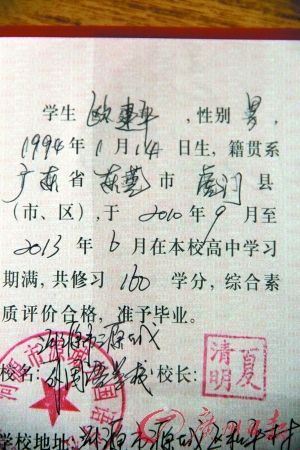 学生 欧建平 ,性别 男,
1994年1月14日生,籍贯系
广东省 东莞 市 虎门 县
(市、区),于 2010年9月至
2013年6月在本校高中学习
期满,共修习 160 学分,综合素
质评价合格,准予毕业。
河源市源城
校名:外国语学校 校长:
夏清明
学校地址:河源市源城区和平村